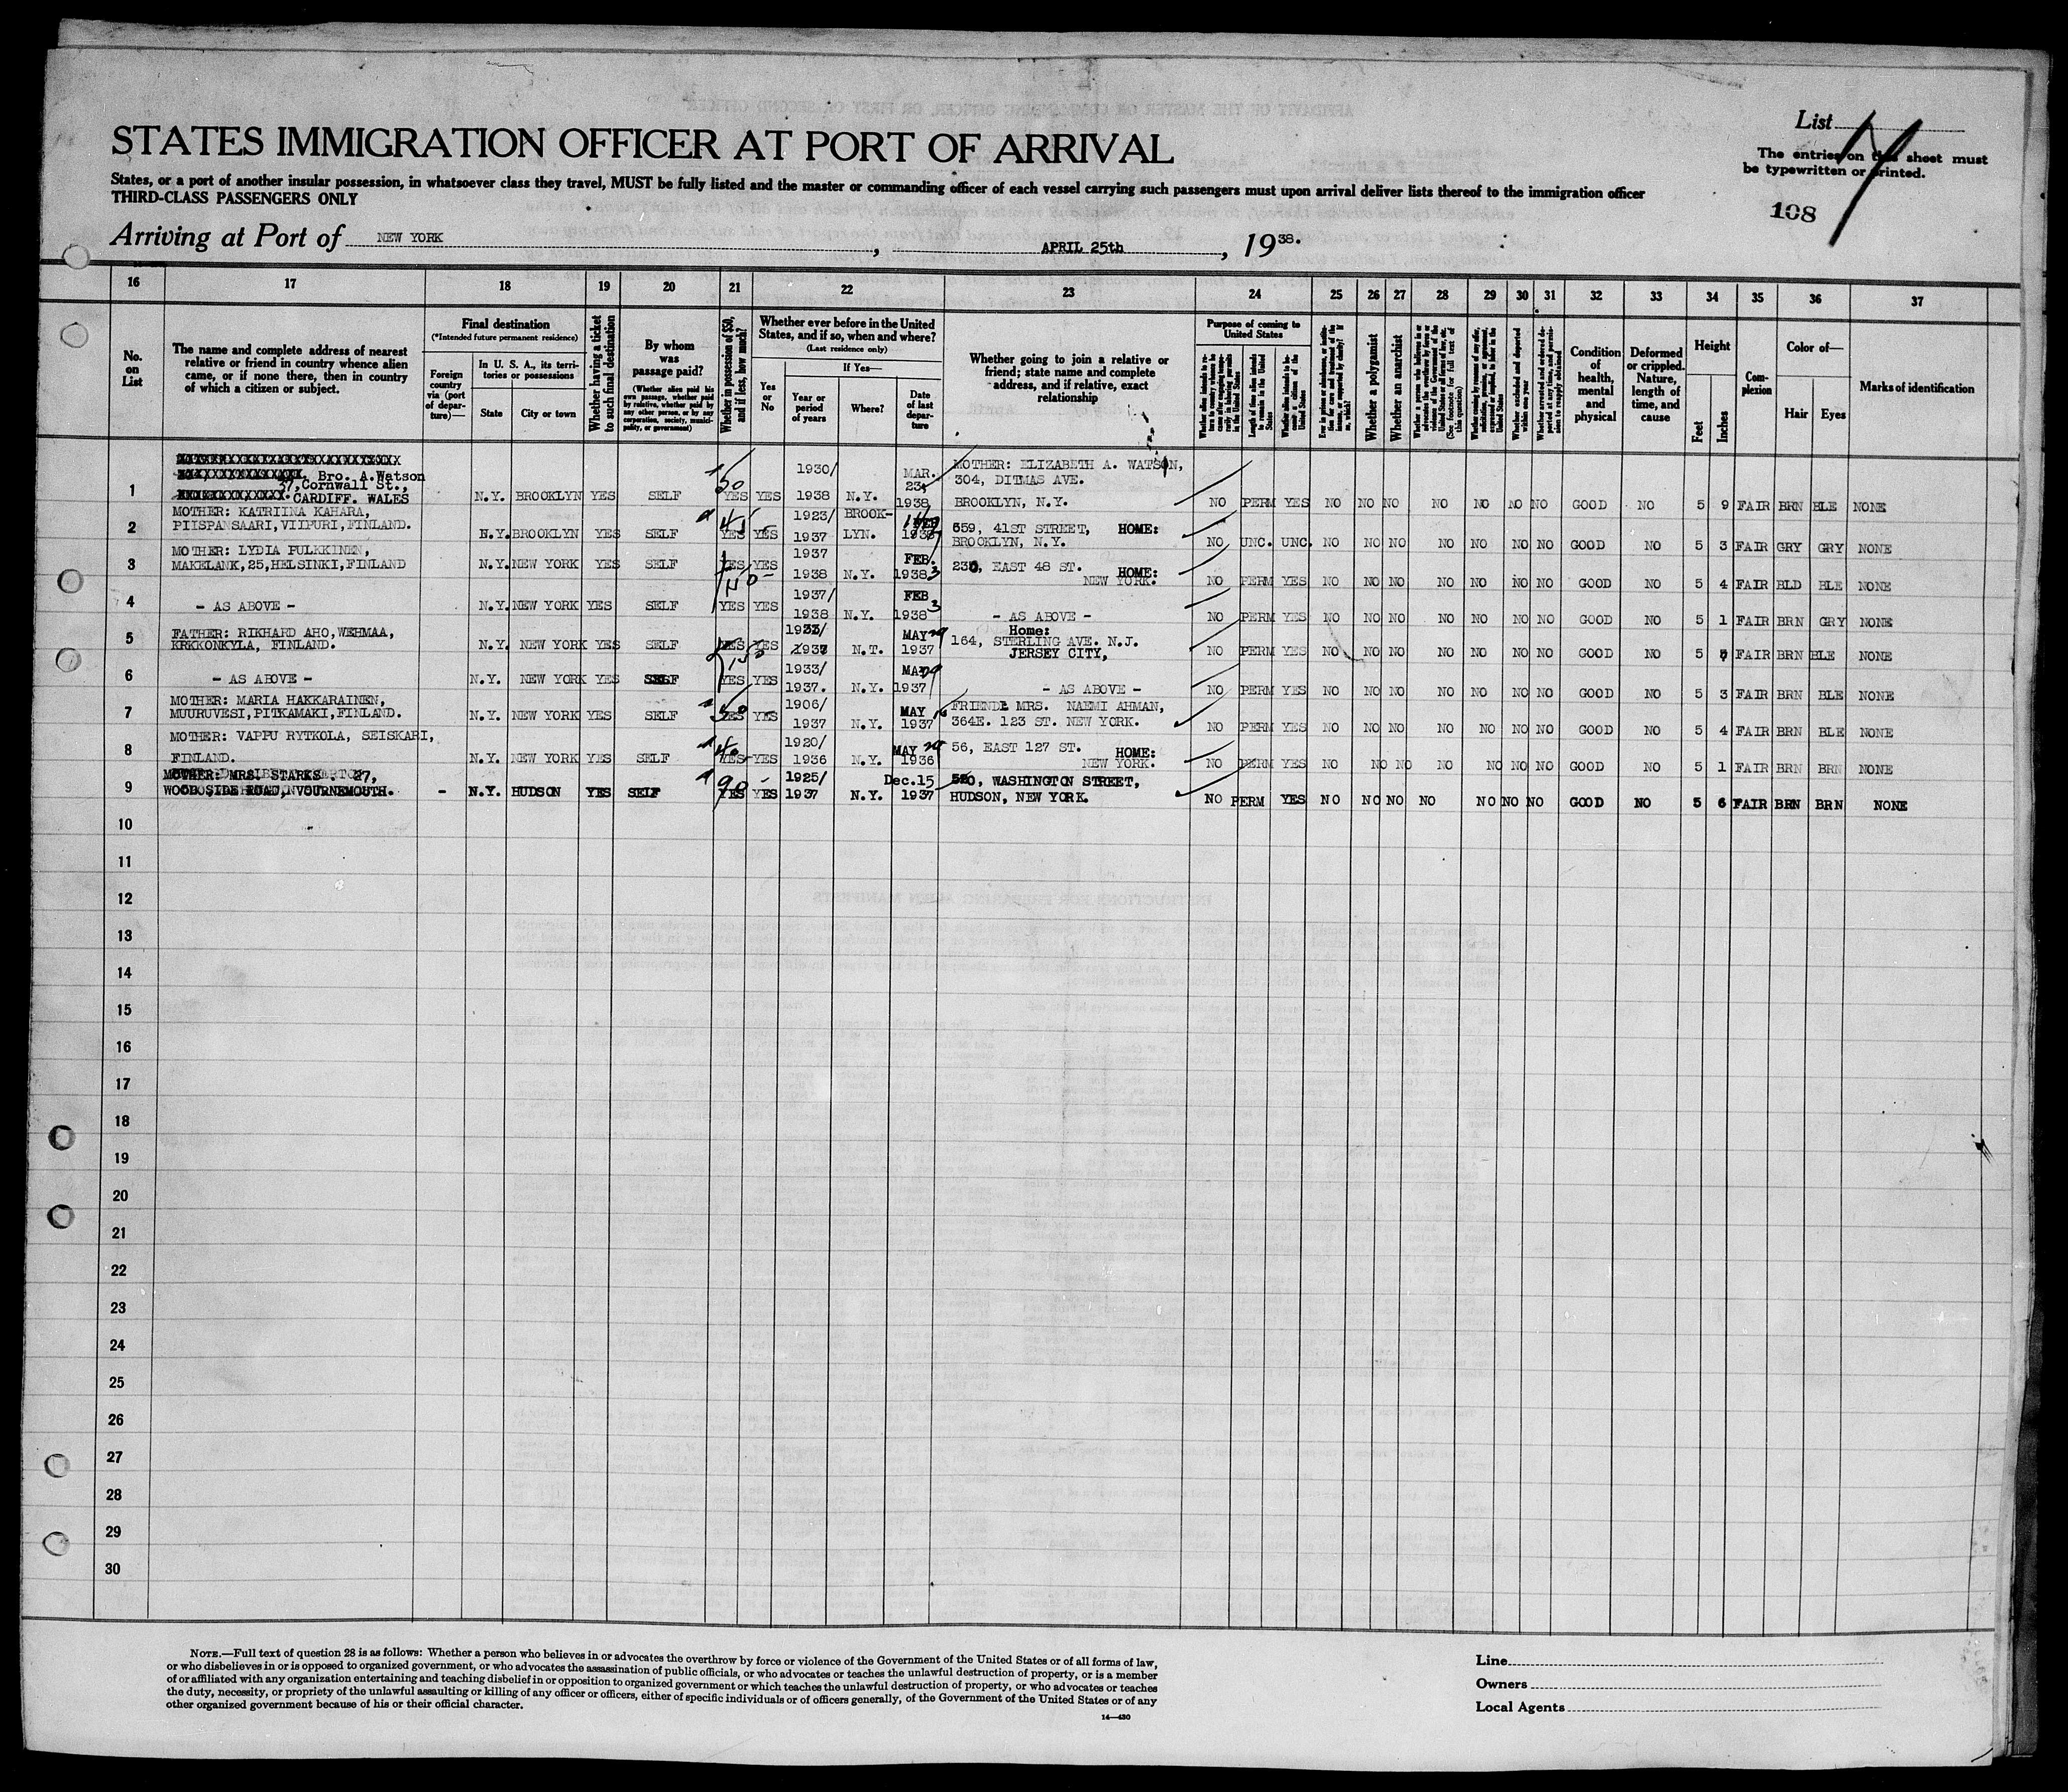 List 14
STATES IMMIGRATION OFFICER AT PORT OF ARRIVAL
The entries on this sheet must
be typewritten or printed.
States, or a port of another insular possession, in whatsoever class they travel, MUST be fully listed and the master or commanding officer of each vessel carrying such passengers must upon arrival deliver lists thereof to the immigration officer
THIRD-CLASS PASSENGERS ONLY
108
Arriving at Port of NEW YORK, APRIL 25th, 1938.
16 17 18 19 20 21 22 23 24 25 26 27 28 29 30 31 32 33 34 35 36 37
No. on List
The name and complete address of nearest
relative or friend in country whence alien
came, or if none there, then in country
of which a citizen or subject.
Final destination
(*Intended future permanent residence)
Foreign country via (port of departure)—
In U. S. A., its territories or possessions
State
City or town
Whether having a ticket to such final destination
By whom was passage paid?
(Whether alien paid his own passage, whether paid by relative, whether paid by any other person, or by any corporation, society, municipality, or government)
Whether in possession of $50, and if less, how much?
Whether ever before in the United
States, and if so, when and where?
(Last residence only)
Yes or No
If Yes—
Year or period of years
Where?
Date of last departure
Whether going to join a relative or
friend; state name and complete
address, and if relative, exact
relationship
Purpose of coming to United States
Length of time alien intends to remain in the United States
Whether a polygamist
Whether an anarchist
Condition of health, mental and physical
Deformed or crippled. Nature, length of time, and cause
Height
Feet
Inches
Complexion
Color of—
Hair
Eyes
Marks of identification
1 Bro. A.Watson
37, Cornwall St.,
CARDIFF. WALES N.Y. BROOKLYN YES SELF YES 50 YES 1930/ 1938 N.Y. MAR. 23, 1938 MOTHER: ELIZABETH A. WATSON,
304, DITMAS AVE.
BROOKLYN, N.Y. NO PERM YES NO NO NO NO NO NO NO GOOD NO 5 9 FAIR BRN BLE NONE
2 MOTHER: KATRIINA KAHARA,
PIISPANSAARI, VIIPURI, FINLAND. N.Y. BROOKLYN YES SELF YES YES 1923/ 1937 BROOK-LYN. 659, 41ST STREET, HOME:
BROOKLYN, N.Y. NO UNC. UNC. NO NO NO NO NO NO NO GOOD NO 5 3 FAIR GRY GRY NONE
3 MOTHER: LYDIA PULKKINEN,
MAKELANK, 25, HELSINKI, FINLAND N.Y. NEW YORK YES SELF YES YES 1937 1938 N.Y. FEB. 3 1938 EAST 48 ST. HOME:
NEW YORK. NO PERM YES NO NO NO NO NO NO NO GOOD NO 5 4 FAIR BLD BLE NONE
4 - AS ABOVE - N.Y. NEW YORK YES SELF YES YES 1937/ 1938 N.Y. FEB 3 1938 - AS ABOVE - NO PERM YES NO NO NO NO NO NO NO GOOD NO 5 1 FAIR BRN GRY NONE
5 FATHER: RIKHARD AHO, WEHMAA,
KRKKONKYLA, FINLAND. N.Y. NEW YORK YES SELF YES 150 YES 1933/ 1937 N.T. MAY 29 1937 Home:
164, STERLING AVE. N.J.
JERSEY CITY, NO PERM YES NO NO NO NO NO NO NO GOOD NO 5 FAIR BRN BLE NONE
6 - AS ABOVE - N.Y. NEW YORK YES SELF YES YES 1933/ 1937. N.Y. MAY 29 1937 - AS ABOVE - NO PERM YES NO NO NO NO NO NO NO GOOD NO 5 3 FAIR BRN BLE NONE
7 MOTHER: MARIA HAKKARAINEN,
MUURUVESI, PITKAMAKI, FINLAND. N.Y. NEW YORK YES SELF YES 50 YES 1906/ 1937 N.Y. MAY 1937 FRIEND: MRS. NAEMI AHMAN,
364E. 123 ST. NEW YORK. NO PERM YES NO NO NO NO NO NO NO GOOD NO 5 4 FAIR BRN BLE NONE
8 MOTHER: VAPPU RYTKOLA, SEISKARI,
FINLAND. N.Y. NEW YORK YES SELF YES 40 YES 1920/ 1936 N.Y. MAY 29 1936 56, EAST 127 ST. HOME:
NEW YORK. NO PERM YES NO NO NO NO NO NO NO GOOD NO 5 1 FAIR BRN BRN NONE
9 MOTHER: MRS. STARKS. 27,
WOOD SIDE ROAD, - N.Y. HUDSON YES SELF YES 90 YES 1925/ 1937 N.Y. Dec.15 1937 WASHINGTON STREET,
HUDSON, NEW YORK. NO PERM YES NO NO NO NO NO NO NO GOOD NO 5 6 FAIR BRN BRN NONE
10
11
12
13
14
15
16
17
18
19
20
21
22
23
24
25
26
27
28
29
30
NOTE.—Full text of question 28 is as follows: Whether a person who believes in or advocates the overthrow by force or violence of the Government of the United States or of all forms of law,
or who disbelieves in or is opposed to organized government, or who advocates the assassination of public officials, or who advocates or teaches the unlawful destruction of property, or is a member
of or affiliated with any organization entertaining and teaching disbelief in or opposition to organized government or which teaches the unlawful destruction of property, or who advocates or teaches
the duty, necessity, or propriety of the unlawful assaulting or killing of any officer or officers, either of specific individuals or of officers generally, of the Government of the United States or of any
other organized government because of his or their official character.
14—430
Line
Owners
Local Agents